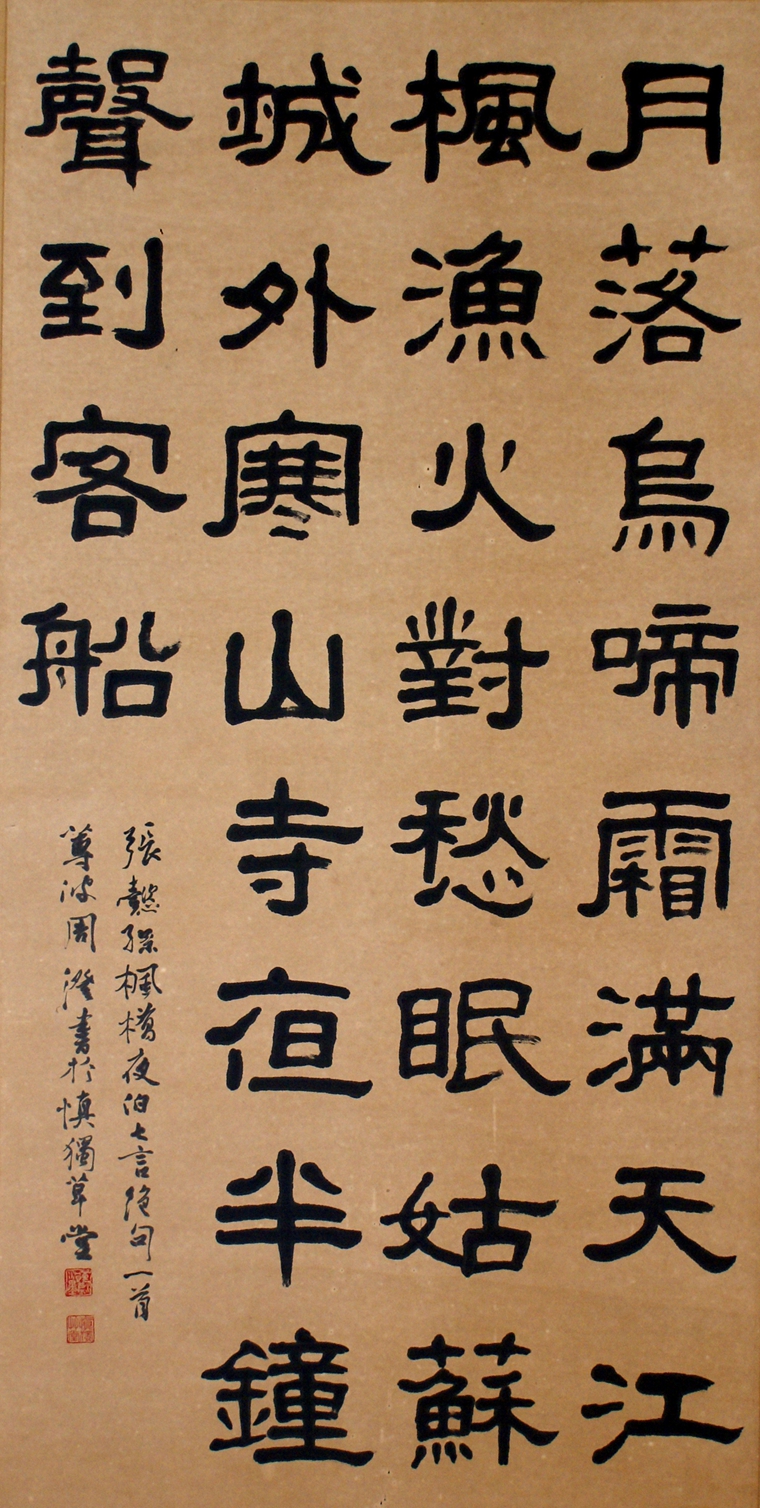 月落烏啼霜滿天江
楓漁火對愁眠姑蘇
城外寒山寺夜半鐘
聲到客船
張懿孫楓橋夜泊七言絕句一首
蓴波周澄書於慎獨草堂